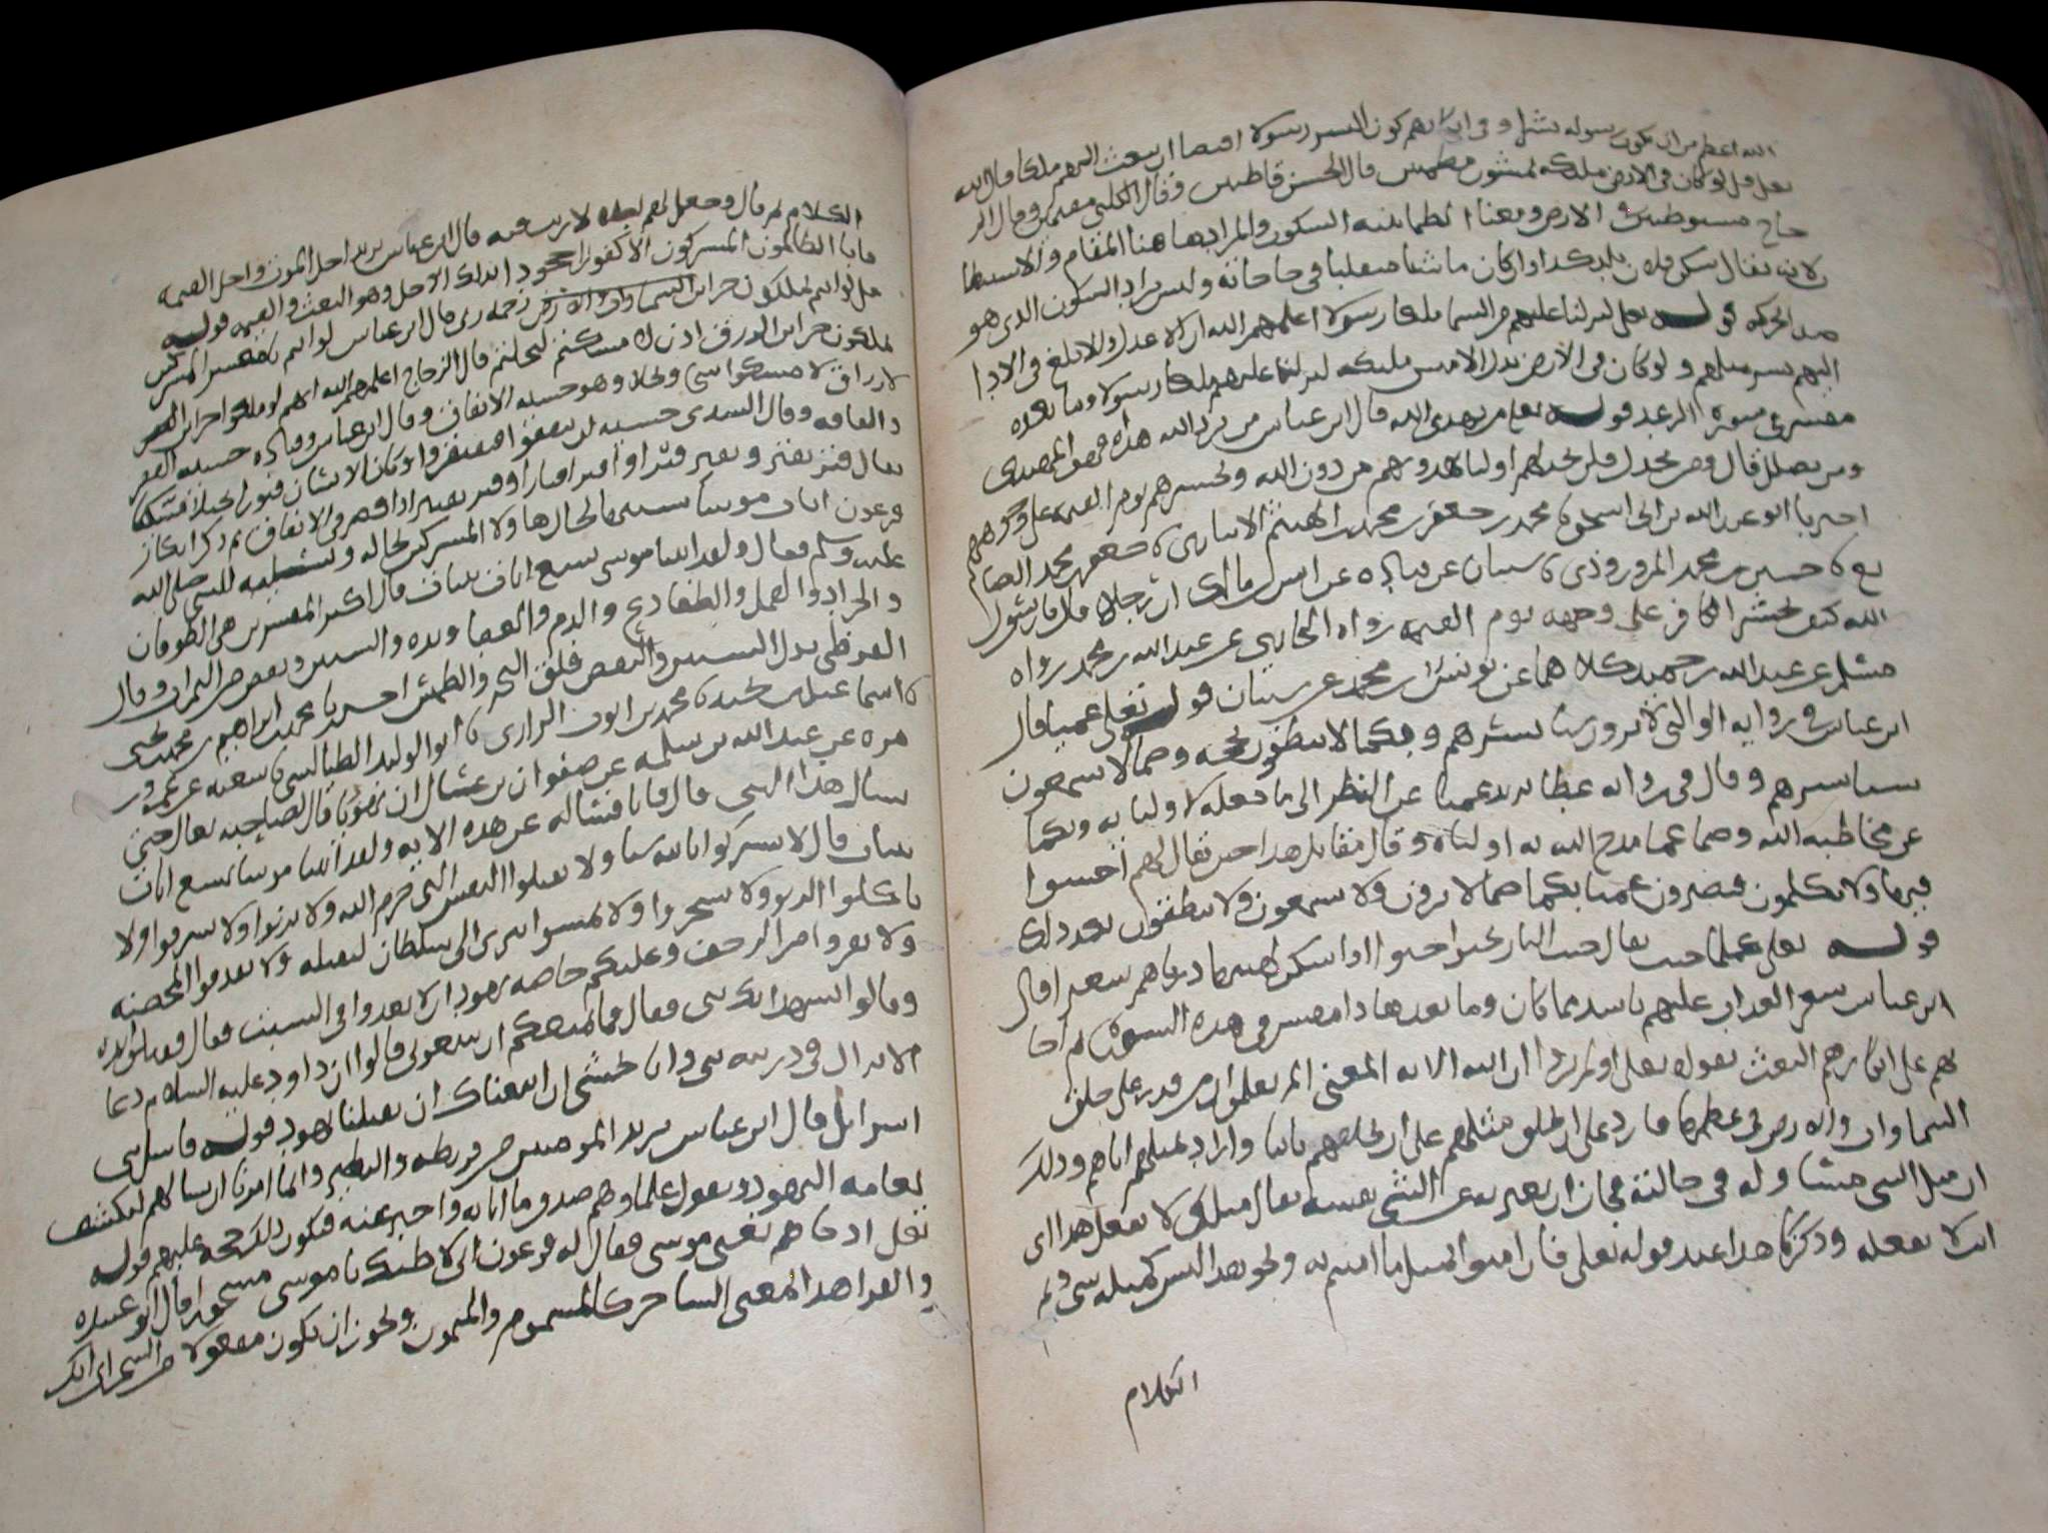 الله اعظم من ان يكون رسوله بشرا وفى انكارهم كون البشر رسولا اقتضا ان يبعث اليهم ملكا فقال الله
تعلى قل لو كان فى الارض ملىكه يمشون مطمىىن قال الحسن قاطنين وقال الكلبى مقيمين وقال الز
جاج مستوطنين فى الارض ومعنا الطمانينه السكون والمراد هاهنا المقام والاستيطا
لانه يقال سكن فلان بلد كذا وان كان ماشيا متقلبا فى حاجاته وليس يراد السكون الذى هو
ضد الحركه قوله تعلى لنزلنا عليهم من السما ملكا رسولا اعلمهم الله ان الاعدل والابلغ فى الادا
اليهم بشر مثلهم ولو كان فى الارض بدل الادميين مليكه لنزلنا عليهم ملكا رسولا وما بعده
مفسر فى سورة الرعد قوله تعلى من يهدى الله قال ابن عباس من يرد الله هداه فهو المهتدى
ومن يضلل قال ومن يخذل فلن تجد لهم اوليا يهدونهم من دون الله ونحشرهم يوم القيمه على وجوههم
اخبرنا ابو عبد الله بن ابى اسحق نا محمد بن جعفر بن محمد بن الهيثم الانبارى نا جعفر بن محمد الصا
يغ نا حسين بن محمد المروروذى نا شيبان عن قتاده عن انس بن مالك ان رجلا قال يا رسول
الله كيف يحشر الكافر على وجهه يوم القيمه رواه البخارى عن عبد الله بن محمد رواه
مسلم عن عبد الله بن حميد كلاهما عن يونس بن محمد عن شيبان قوله تعلى عميا قال
ابن عباس فى رواية الوالبى لا يرون شيا يسرهم وبكما لا ينطقون بحجه وصما لا يسمعون
شيا يسرهم وقال فى رواية عطا يريد عميا عن النظر الى ما جعله لاوليايه وبكما
عن مخاطبه الله وصما عما مدح الله به اولياه وقال مقاتل هذا حين يقال لهم اخسوا
فيها ولا تكلمون فيصيرون عميا بكما صما لا يرون ولا يسمعون ولا ينطقون بعد ذلك
قوله تعلى كلما خبت يقال خبت النار تخبوا خبوا اذا سكن لهبها زدناهم سعيرا قال
ابن عباس سعر العذاب عليهم باشد مما كان وما بعد هذا مفسر فى هذه السورة ثم اجا
بهم على انكارهم البعث بقوله تعلى اولم يروا ان الله الايه المعنى الم يعلموا ان من قدر على خلق
السماوات والارض فى عظمها قادر على ان يخلق مثلهم على ان يخلقهم ثانيا واراد بمثلهم اياهم وذلك
ان مثل الشى مساوله فى حالته فجاز ان يعبر به عن الشى نفسه يقال مثلك لا يفعل هذا اى
انت لا تفعله وذكرنا هذا عند قوله تعلى فان امنوا بمثل ما امنتم به ونحو هذا ليس كمثله شى وتم
الكلام
الكلام ثم قال وجعل لهم اجلا لا ريب فيه قال ابن عباس يريد اجل الموت واجل القيمه
فابا الظالمون المشركون الا كفورا جحودا بذلك الاجل وهو البعث والقيمه قوله
قل لو انتم تملكون خزاين السماوات والارض رحمه ربى قال ابن عباس لو انتم يا معشر المشركين
تملكون خزاين الرزق اذن لامسكتم لبخلتم قال الزجاج اعلمهم الله انهم لو ملكوا خزاين
الارزاق لامسكوا شحا وبخلا وهو خشيه الانفاق وقال ابن عباس وقتاده خشيه الفقر
والفاقه وقال السدى خشيه ان ينفقوا فيفتقروا وكان الانسان قتورا بخيلا ممسكا
يقال قتر يقتر ويقتر قترا واقتر اقتارا وقتر تقتيرا اذا قصر فى الانفاق ثم ذكر انكار
فرعون ايات موسا تشبيها بحال هاولا المشركين بحاله وتسليه للنبى صلى الله
عليه وسلم فقال ولقد اتينا موسى تسع ايات بينات قال اكثر المفسرين هى الطوفان
والجراد والقمل والضفادع والدم والعصا ويده والسنين ونقص من الثمرات وقال
القرظى بدل السنين والنقص فلق البحر والطمس اخبرنا محمد بن ابراهيم بن محمد بن يحيى
نا اسماعيل بن نجيد نا محمد بن ايوب الرازى نا ابو الوليد الطيالسى نا شعبه عن عمرو بن
مره عن عبد الله بن سلمه عن صفوان بن عسال ان يهوديا قال لصاحبه تعال حتى
نسال هذا النبى قال فاتاه فسالاه عن هذه الايه ولقد اتينا موسا تسع ايات
بينات قال لا تشركوا بالله شيا ولا تقتلوا النفس التى حرم الله ولا تزنوا ولا تسرقوا ولا
تاكلوا الربوا ولا تسحروا ولا تمشوا ببرى الى سلطان ليقتله ولا تقذفوا المحصنه
ولا تفروا من الزحف وعليكم خاصه يهود ان لا تعدوا فى السبت فقال فقبلوا يده
وقالوا نشهد انك نبى فقال فما يمنعكم ان تتبعونى قالوا ان داود عليه السلام دعا
الا يزال فى ذريته نبى وانا نخشى ان اتبعناك ان يقتلنا يهود قوله فاسل بنى
اسرايل قال ابن عباس يريد المومنين من قريظه والنضير وانما امره ان يسالهم ليكشف
لعامه اليهود بقول علماوهم صدق ما اتا به واخبر عنه فيكون ذلك حجه عليهم قوله
تعلى اذ جاهم يعنى موسى فقال له فرعون انى لاظنك يا موسى مسحورا قال ابو عبيده
والفرا هذا بمعنى الساحر كالمشوم والميمون ويجوز ان يكون مفعولا من السحر اى انك